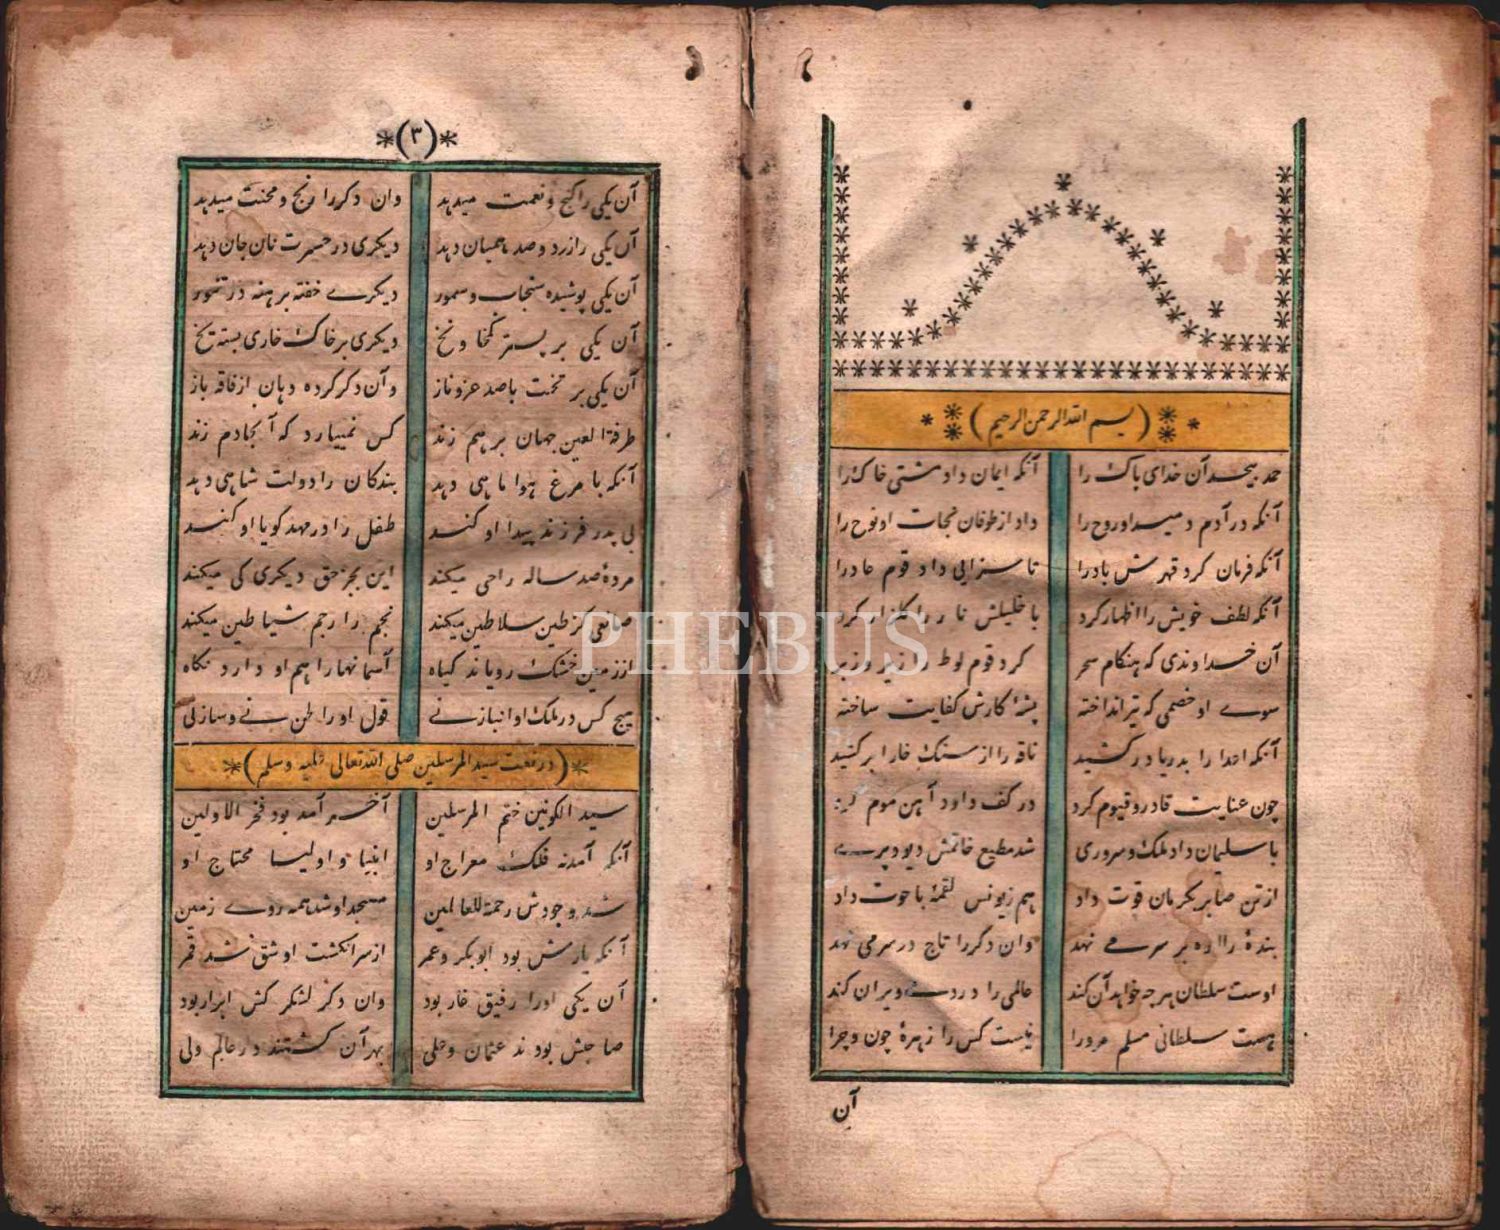 (بسم الله الرحمن الرحیم)
حمد بیحد آن خدای پاک را آنکه ایمان داد مشتی خاک را
آنکه در آدم دمید او روح را داد از طوفان نجات او نوح را
آنکه فرمان کرد قهرش باد را تا سزایی داد قوم عاد را
آنکه لطف خویش را اظهار کرد با خلیلش نار را گلزار کرد
آن خداوندی که هنکام سحر کرد قوم لوط را زیر و زبر
سوے او خصمی که تیر انداخته پشهٔ کارش کفایت ساخته
آنکه اعدا را بدریا در کشید ناقه را از سنک خارا بر کشید
چون عنایت قادر و قیوم کرد در کف داود آهن موم کرد
با سلیمان داد ملک و سروری شد مطیع خاتمش دیو و پرے
از تن صابر بکرمان قوت داد هم ز یونس لقمهٔ با حوت داد
بندهٔ را اره بر سر مے نهد وان دگر را تاج در سر می نهد
اوست سلطان هرچه خواهد آن کند عالمی را در دمے ویران کند
هست سلطانی مسلم مر ورا نیست کس را زهرهٔ چون و چرا
آن
(٣)
آن یکی را کنج و نعمت میدهد وان دکر را رنج و محنت میدهد
آن یکی را زر دوصد همیان دهد دیکری در حسرت نان جان دهد
آن یکی پوشیده سنجاب و سمور دیکرے خفته برهنه در تنور
آن یکی بر بستر کمخا و نخ دیکری بر خاک خاری بسته یخ
آن یکی بر تخت با صد عز و ناز وآن دکر کرده دهان از فاقه باز
طرفة العین جهان بر هم زند کس نمییارد که آنجا دم زند
آنکه با مرغ هوا ماهی دهد بندکان را دولت شاهی دهد
بی پدر فرزند پیدا او کند طفل را در مهد کویا او کند
مردهٔ صد ساله را حی میکند این بجز حق دیکری کی میکند
صانعی کز طین سلاطین میکند نجم را رجم شیاطین میکند
از زمین خشک رویاند کیاه آسمانها را هم او دارد نکاه
هیچ کس در ملک او انباز نے قول او را لحن نے و ساز نے
(در نعت سید المرسلین صلی الله تعالی علیه وسلم)
سید الکونین ختم المرسلین آخر آمد بود فخر الاولین
آنکه آمد نه فلک معراج او انبیا و اولیا محتاج او
شد وجودش رحمة للعالمین مسجد او شد همه روے زمین
آنکه یارش بود ابوبکر و عمر از سر انکشت او شق شد قمر
آن یکی او را رفیق غار بود وان دکر لشکر کش ابرار بود
صاحبش بودند عثمان و علی بهر آن کشتند در عالم ولی
PHEBUS